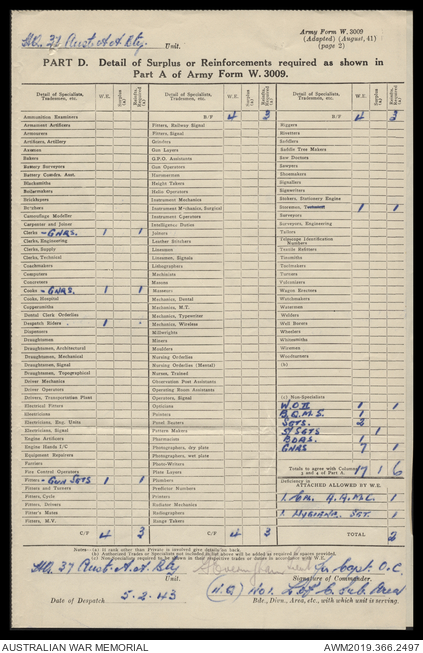 HQ. 37 Aust. A.A. Bty. Unit.
Army Form W. 3009
(Adapted) (August, 41)
(page 2)
PART D. Detail of Surplus or Reinforcements required as shown in
Part A of Army Form W. 3009.
Detail of Specialists, Tradesmen, etc. W.E. Surplus (a) Reinfts. Required (a)
Detail of Specialists, Tradesmen, etc. W.E. Surplus (a) Reinfts. Required (a)
Detail of Specialists, Tradesmen, etc. W.E. Surplus (a) Reinfts. Required (a)
Ammunition Examiners
Armament Artificers
Armourers
Artificers, Artillery
Axemen
Bakers
Battery Surveyors
Battery Comdrs. Asst.
Blacksmiths
Boilermakers
Bricklayers
Butchers
Camouflage Modeller
Carpenter and Joiner
Clerks - GNRS. 1 1
Clerks, Engineering
Clerks, Supply
Clerks, Technical
Coachmakers
Computers
Concretors
Cooks - GNRS 1 1
Cooks, Hospital
Coppersmiths
Dental Clerk Orderlies
Despatch Riders 1
Dispensers
Draughtsmen
Draughtsmen, Architectural
Draughtsmen, Mechanical
Draughtsmen, Signal
Draughtsmen, Topographical
Driver Mechanics
Driver Operators
Drivers, Transportation Plant
Electrical Fitters
Electricians
Electricians, Eng. Units
Electricians, Signal
Engine Artificers
Engine Hands I/C
Equipment Repairers
Farriers
Fire Control Operators
Fitters - Gun SETS 1 1
Fitters and Turners
Fitters, Cycle
Fitters, Drivers
Fitter's Mates
Fitters, M.V.
C/F 4 3
B/F 4 3
Fitters, Railway Signal
Fitters, Signal
Grinders
Gun Layers
G.P.O. Assistants
Gun Operators
Horsermen
Height Takers
Helio Operators
Instrument Mechanics
Instrument Mechanics, Surgical
Instrument Operators
Intelligence Duties
Joiners
Leather Stitchers
Linesmen
Linesmen, Signals
Lithographers
Machinists
Masons
Masseurs
Mechanics, Dental
Mechanics, M.T.
Mechanics, Typewriter
Mechanics, Wireless
Millwrights
Miners
Moulders
Nursing Orderlies
Nursing Orderlies (Mental)
Nurses, Trained
Observation Post Assistants
Operating Room Assistants
Operators, Signal
Opticians
Painters
Panel Beaters
Pattern Makers
Pharmacists
Photographers, dry plate
Photographers, wet plate
Photo-Writers
Plate Layers
Plumbers
Predictor Numbers
Printers
Radiographers
Radio Mechanics
Range Takers
C/F 4 3
B/F 4 3
Riggers
Riveters
Saddlers
Saddle Tree Makers
Saw Doctors
Sawyers
Shoemakers
Signallers
Signwriters
Stokers, Stationary Engine
Storemen, 1 1
Surveyors
Surveyors, Engineering
Tailors
Telescope Identification Numbers
Textile Refitters
Tinsmiths
Toolmakers
Turners
Vulcanizers
Wagon Erectors
Watchmakers
Watermen
Welders
Well Borers
Wheelers
Whitesmiths
Wiremen
Woodturners
(b)
(c) Non-Specialists
W.O.II 1 1
B.Q.M.S. 1
SGTS. 2
1
BDRS. 1
GNRS 7 1
Totals to agree with Columns
3 and 4 of Part A. 17 1 6
Deficiency in
ATTACHED ALLOWED W.E.
A.A.M.C. 1
1 HYGIENE SGT. 1
TOTAL 2
HQ. 37 Aust. A.A. Bty Unit.
for Capt. O.C.
Signature of Commander.
Date of Despatch 5-2-43
Bde., Div., Area, etc., with which unit is serving.
AUSTRALIAN WAR MEMORIAL
AWM2019.366.2497